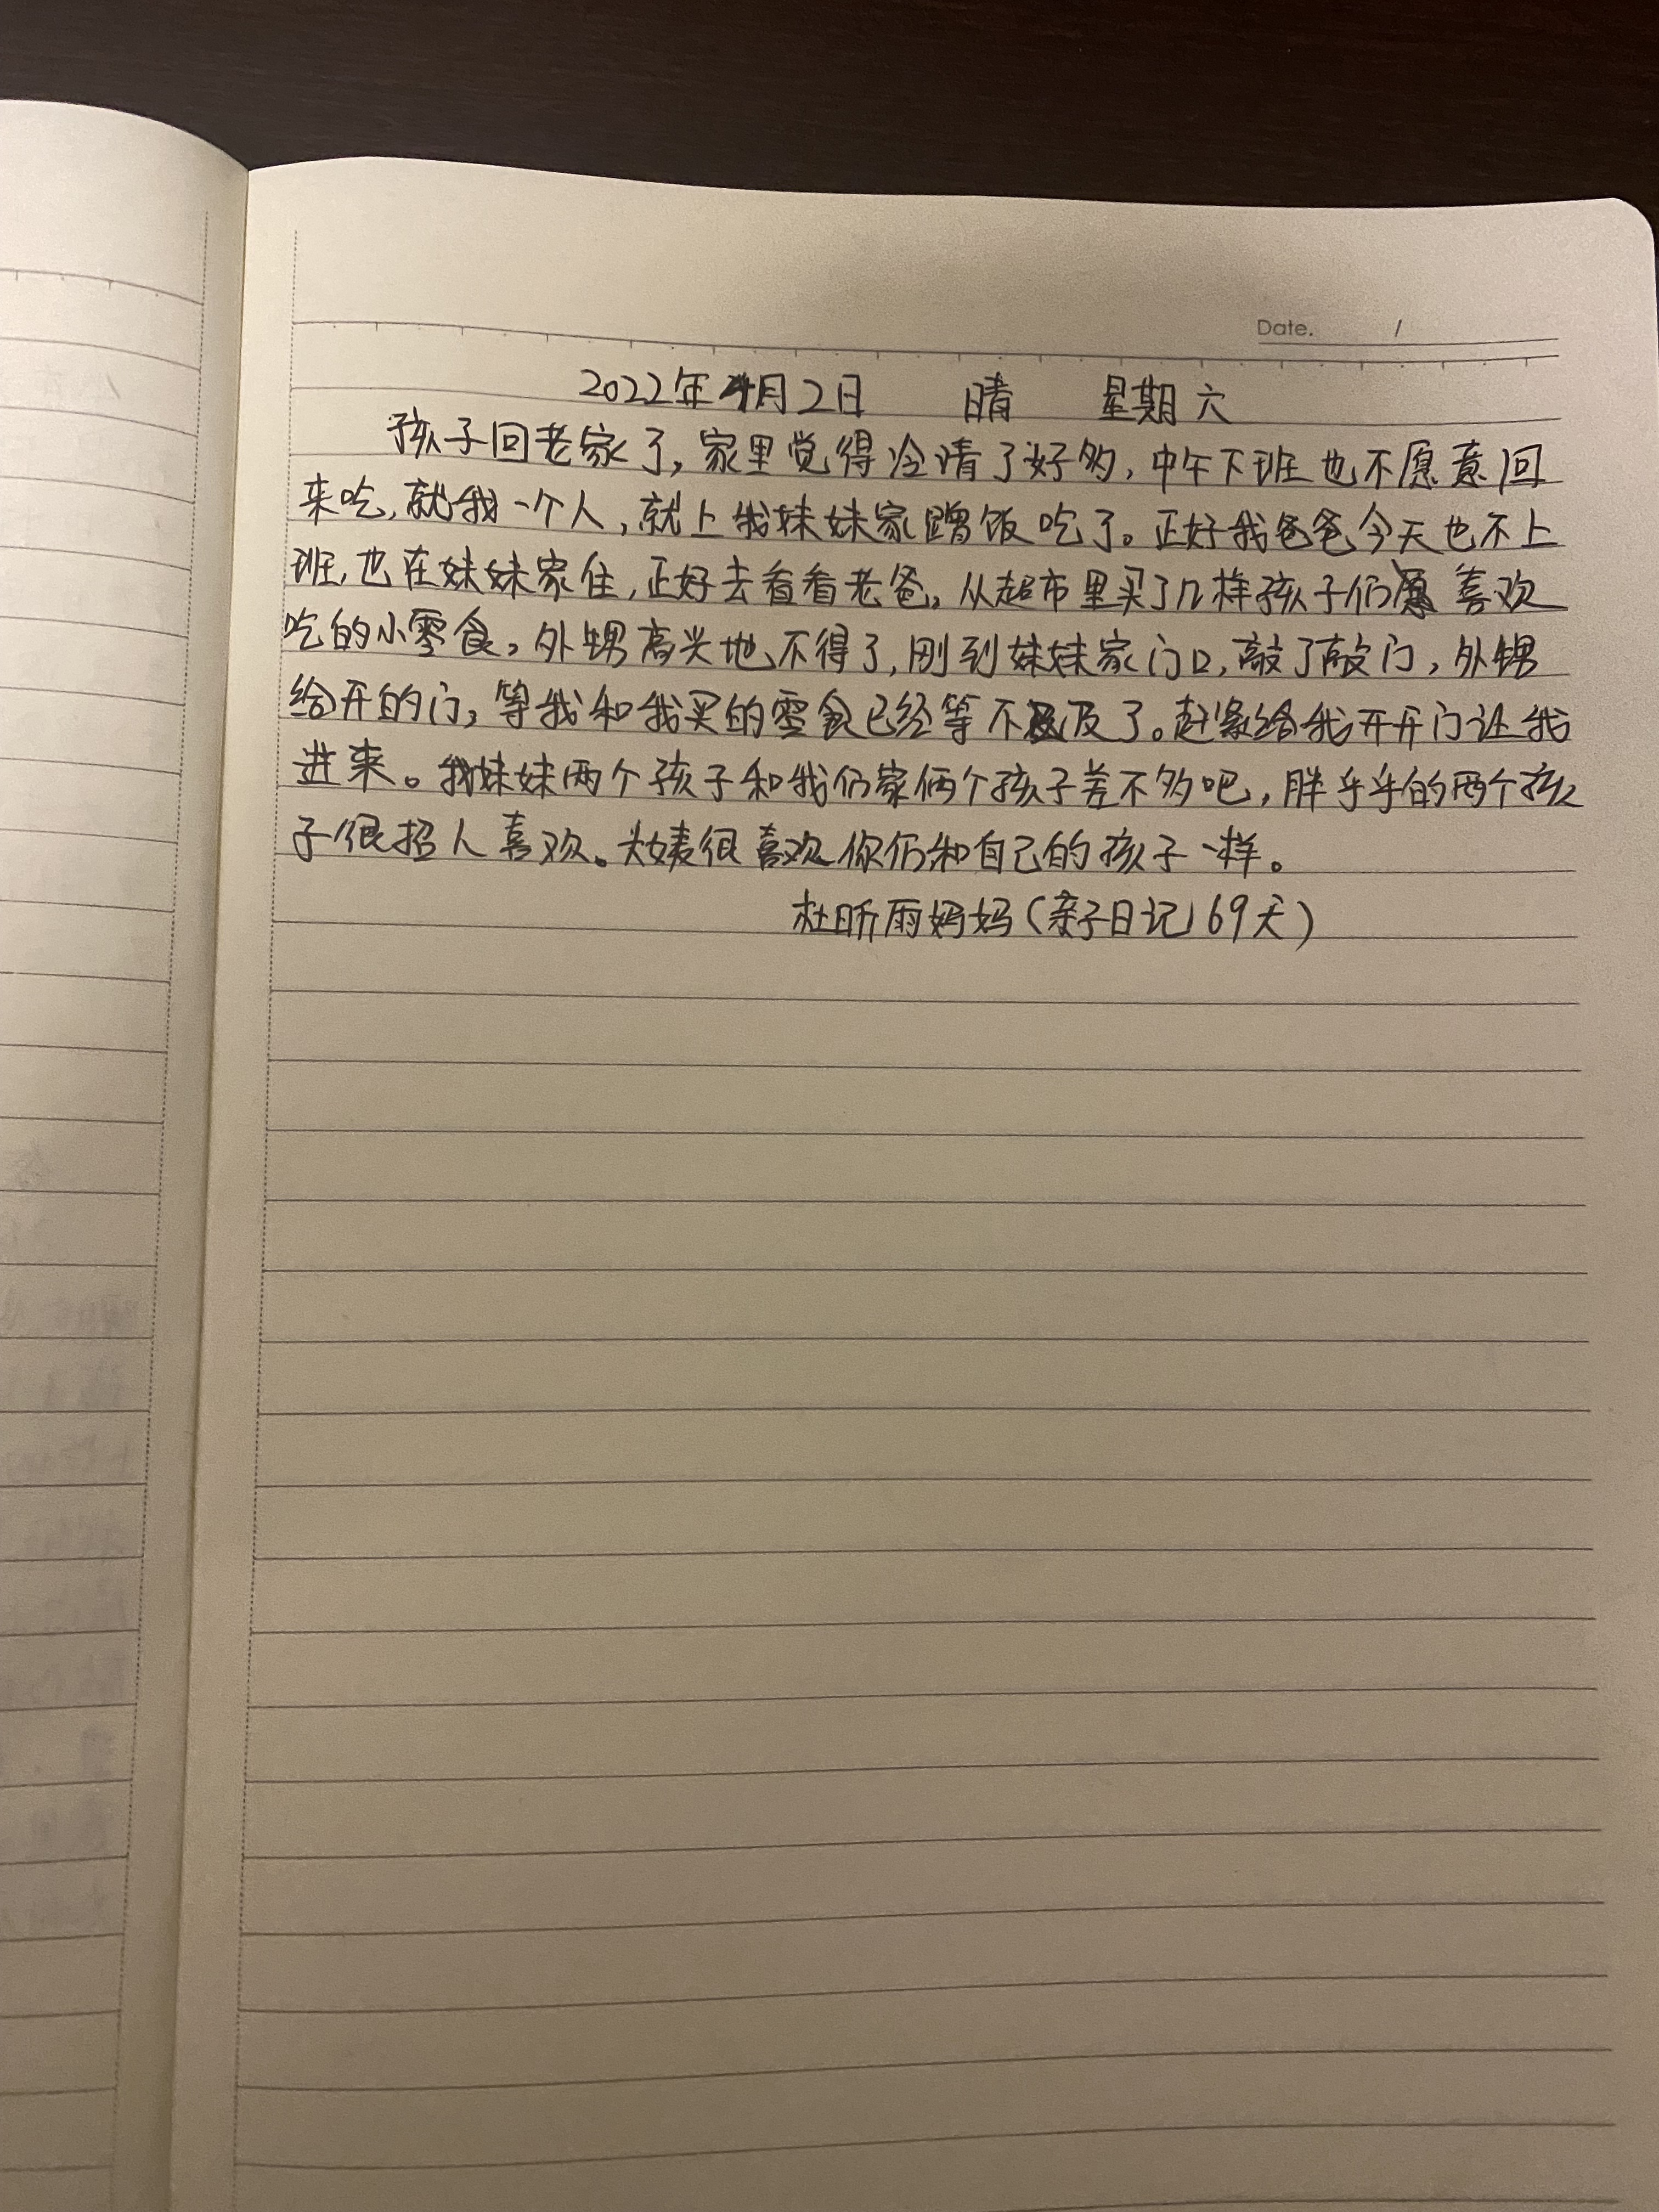 Date. /
2022年4月2日 晴 星期六
孩子回老家了,家里觉得冷清了好多,中午下班也不愿意回
来吃,就我一个人,就上我妹妹家蹭饭吃了。正好我爸爸今天也不上
班,也在妹妹家住,正好去看看老爸,从超市里买了几样孩子们喜欢
吃的小零食,外甥高兴地不得了,刚到妹妹家门口,敲了敲门,外甥
给开的门,等我和我买的零食已经等不及了。赶紧给我开开门让我
进来。我妹妹两个孩子和我们家俩个孩子差不多吧,胖乎乎的两个孩
子很招人喜欢。大姨很喜欢你们和自己的孩子一样。
杜昕雨妈妈(亲子日记169天)